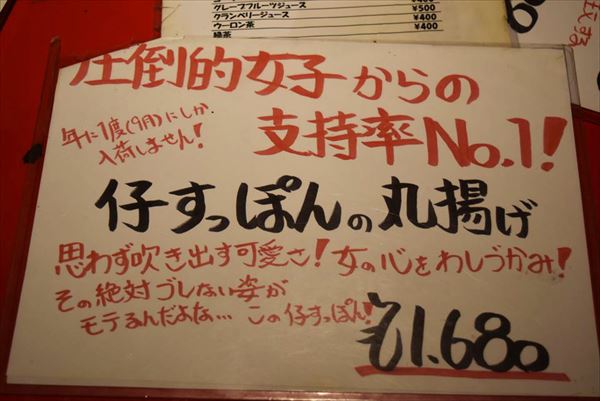 グレープフルーツジュース ¥500
クランベリージュース ¥400
ウーロン茶 ¥400
緑茶
圧倒的女子からの
支持率No.1!
年に1度(9月)にしか
入荷しません!
仔すっぽんの丸揚げ
思わず吹き出す可愛さ!女の心をわしづかみ!
その絶対ブレない姿が
モテるんだよな…この仔すっぽん!
¥1,680